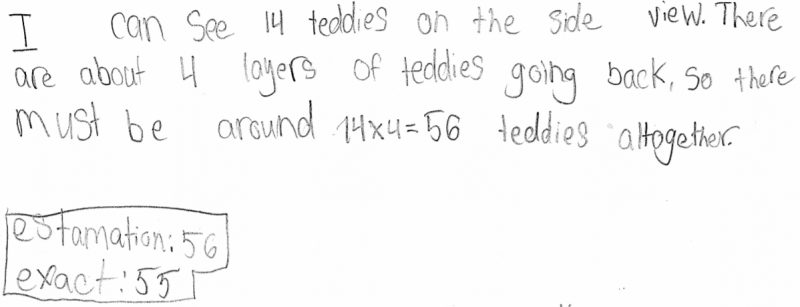 I can see 14 teddies on the side view. There
are about 4 layers of teddies going back, so there
must be around 14x4=56 teddies altogether.
estamation: 56
exact: 55